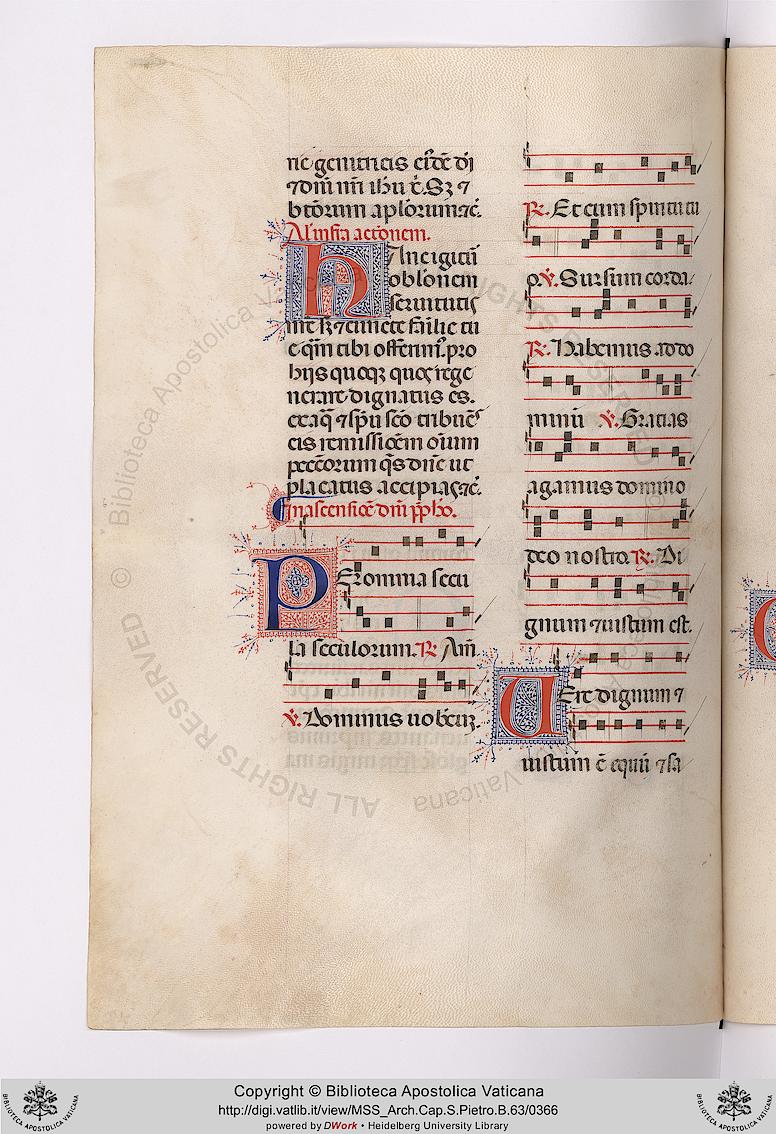 nc genitricis eiꝰdē dī
⁊ dn̄i nr̄i ihū xp̄i. Sꝫ ⁊
btōrum aplōrum ⁊c̄.
Al' infra actōnem.
HAnc igitū
oblōnem
seruitutis
nr̄e sꝫ ⁊ cuncte fāilie tu
e q̄m tibi offerim'. pro
hijs quoqꝫ quos rege
nerare dignatus es.
ex aq̄ ⁊ sp̄u scō tribuēs
eis remissiōem oīum
peccōrum q̄s dn̄e ut
placatus accipias ⁊c̄.
In ascensiōe dn̄i p̄phō.
PEr omnia secu
la seculorum. ℟. Am̄.
℣. Dominus uobcūꝫ.
℟. Et cum spiritu tu
o. ℣. Sursum corda.
℟. Habemus ad do
minū ℣. Gratias
agamus domino
deo nostro. ℟. Di
gnum ⁊ iustum est.
UEre dignum ⁊
iustum ē equū ⁊ sa
© Biblioteca Apostolica Vaticana ALL RIGHTS RESERVED
Copyright © Biblioteca Apostolica Vaticana
http://digi.vatlib.it/view/MSS_Arch.Cap.S.Pietro.B.63/0366
powered by DWork • Heidelberg University Library
BIBLIOTECA APOSTOLICA VATICANA
BIBLIOTECA APOSTOLICA VATICANA